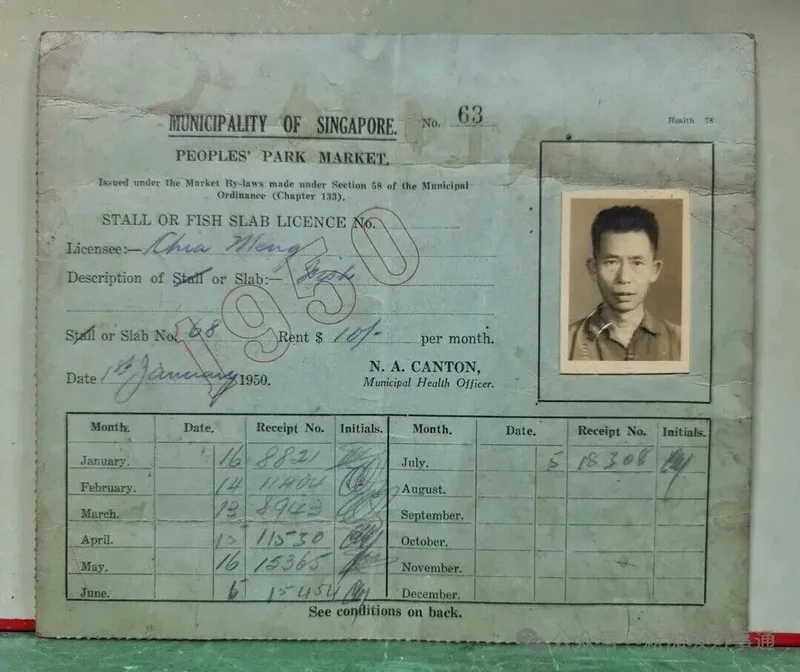 MUNICIPALITY OF SINGAPORE. No. 63
Health 78
PEOPLES' PARK MARKET.
Issued under the Market By-laws made under Section 58 of the Municipal
Ordinance (Chapter 133).
STALL OR FISH SLAB LICENCE No.
1950
Licensee:— Chia Meng
Description of Stall or Slab:— Fish
Stall or Slab No. 68 Rent $ 10/- per month.
N. A. CANTON,
Municipal Health Officer.
Date 1st January 1950.
Month. Date. Receipt No. Initials. Month. Date. Receipt No. Initials.
January. 16 8821 July. 5 18308
February. 14 11404 August.
March. 13 8943 September.
April. 11530 October.
May. 16 15365 November.
June. 6 15454 December.
See conditions on back.